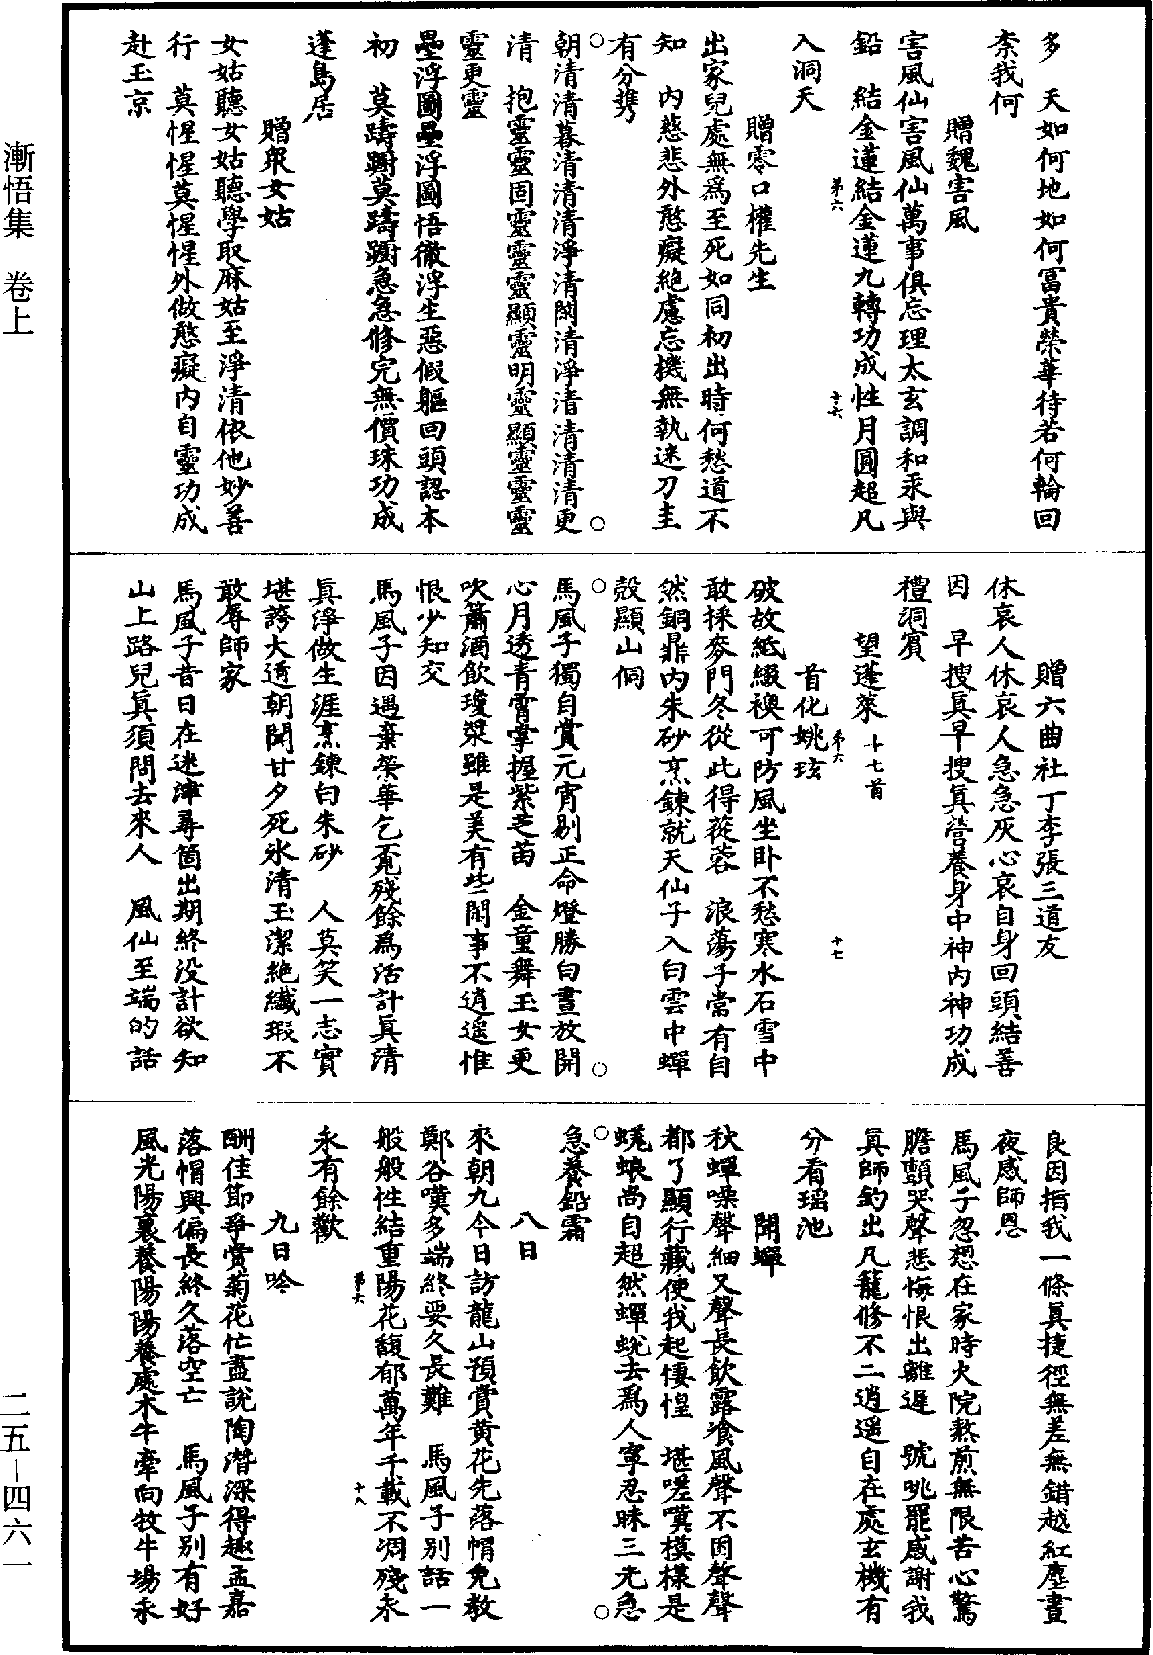 漸悟集　卷上
二五—四六一
多　天如何地如何冨貴榮華待若何輪回
柰我何
贈魏害風
害風仙害風仙萬事俱忘理太玄調和汞與
鉛　結金蓮結金蓮九轉功成性月圓超凡
第六
十六
入洞天
贈零口權先生
出家兒處無爲至死如同初出時何愁道不
知　內慈悲外憨癡絶慮忘機無執迷刀圭
有分𢹂
朝清清暮清清清淨清閑清淨清清清清更
清　抱靈靈固靈靈靈顯靈明靈顯靈靈靈
靈更靈
壘浮圖壘浮圖悟徹浮生惡假軀回頭認本
初　莫躊蹰莫躊蹰急急修完無價珠功成
蓬島居
贈衆女姑
女姑聽女姑聽學取麻姑至淨清依他妙善
行　莫惺惺莫惺惺外做憨癡內自靈功成
赴玉京
贈六曲社丁李張三道友
休哀人休哀人急急灰心哀自身回頭結善
因　早搜眞早搜眞營養身中神內神功成
禮洞賓
望蓬萊　十七首
首化姚玹
第六
十七
破故紙綴襖可防風坐卧不愁寒水石雪中
敢採麥門冬從此得蓯蓉　浪蕩子當有自
然銅鼎內朱砂烹鍊就天仙子入白雲中蟬
殼顯山侗
馬風子獨自賞元宵剔正命燈勝白晝放開
心月透青霄掌握紫芝苗　金童舞玉女更
吹簫酒飲瓊漿雖是美有些閑事不逍遙惟
恨少知交
馬風子因遇棄榮華乞覔殘餘爲活計眞清
眞淨做生涯烹鍊白朱砂　人莫笑一志實
堪誇大透朝聞甘夕死氷清玉潔絶纖瑕不
敢辱師家
馬風子昔日在迷津尋箇出期終没計欲知
山上路兒眞須問去來人　風仙至端的話
良因指我一條眞捷徑無差無錯越紅塵晝
夜感師恩
馬風子忽想在家時火院熬煎無限苦心驚
膽顫哭聲悲悔恨出離遲　號咷罷感謝我
眞師釣出凡籠修不二逍遥自在處玄機有
分看瑶池
聞蟬
秋蟬噪聲細又聲長飲露飡風聲不困聲聲
都了顯行藏使我起悽惶　堪嗟嘆模樣是
蜣蜋尚自超然蟬蛻去爲人寧忍昧三光急
急養鉛霜
八日
來朝九今日訪龍山預賞黄花先落帽免教
鄭谷嘆多端終要久長難　馬風子別話一
般般性結重陽花馥郁萬年千載不凋殘永
第六
十八
永有餘歡
九日吟
酬佳節爭賞菊花忙盡說陶潛深得趣孟嘉
落帽興偏長終久落空亡　馬風子別有好
風光陽裏養陽陽養處木牛牽向牧牛場永